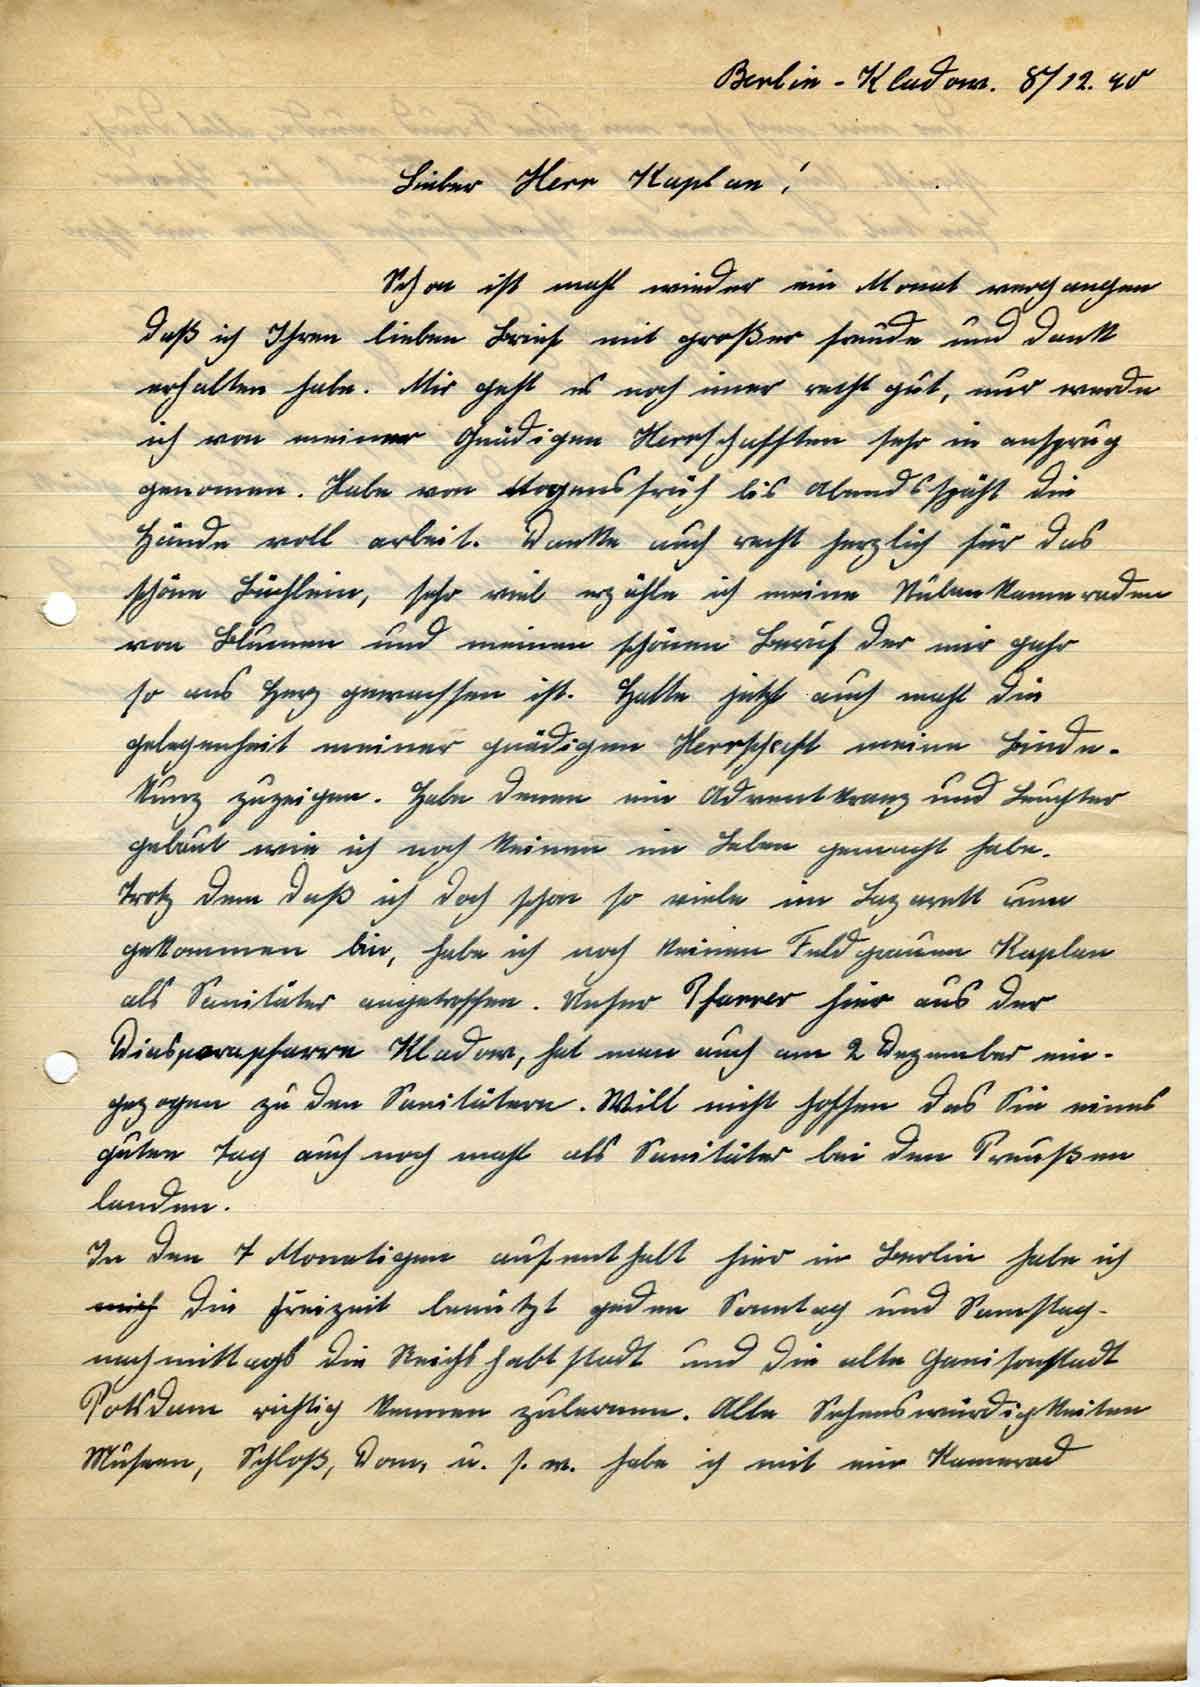 Berlin - Kladow. 8/12. 40
Lieber Herr Kaplan!
Schon ist mahl wieder ein Monat vergangen
daß ich Ihren lieben Brief mit großer freude und dank
erhalten habe. Mir geht es noch imer recht gut, nur werde
ich von meiner Gnädigen Herrschafften sehr in ansprug
genomen. Habe von Mogensfrüh bis Abendsspäht die
Hände voll arbeit. Danke auch recht herzlich für das
schöne Büchlein, sehr viel erzähle ich meine Stubenkameraden
von Blumen und meinen schönen Beruf der mir gahr
so ans Herz gewachsen ist. Hatte jetzt auch mahl die
gelegenheit meiner gnädigen Herrschaft meine Binde-
kunz zuzeigen. Habe denen ein Adventkranz und Leuchter
gebaut wie ich noch keinen im Leben gemacht habe.
Trotz dem daß ich doch schon so viele im Lazarett um
gekommen bin, habe ich noch keinen Feldgrauen Kaplan
als Sanitäter angetroffen. Unser Pfarrer hier aus der
Diasporapfarre Kladow, hat man auch am 2 Dezember ein-
gezogen zu den Sanitätern. Will nicht hoffen das Sie eines
guten Tag auch noch mahl als Sanitäter bei den Preußen
landen.
In den 7 Monatigen aufenthalt hier in Berlin habe ich
mich die freizeit benützt geden Sonntag und Samstag-
nachmittags die Reichshabtstadt und die alte Ganisonstadt
Potsdam richtig kennen zulernen. Alle Sehenswürdigkeiten
Museen, Schloß, Dom, u. s. w. habe ich mit ein Kamerad